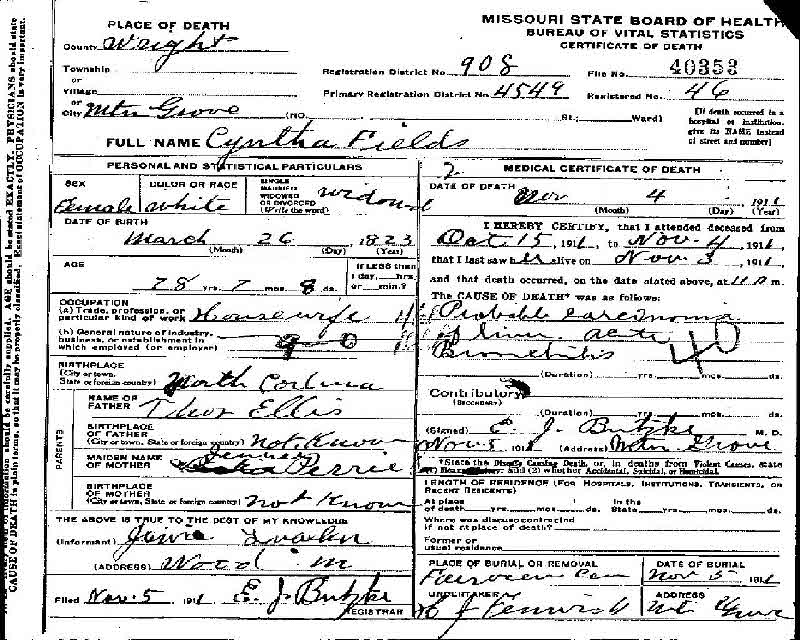 MISSOURI STATE BOARD OF HEALTH
BUREAU OF VITAL STATISTICS
CERTIFICATE OF DEATH
PLACE OF DEATH
County Wright
Township
or
Village
or
City Mtn Grove (NO. St.; Ward)
Registration District No. 908 File No. 40353
Primary Registration District No. 4549 Registered No. 46
[If death occurred in a hospital or institution, give its NAME instead of street and number]
FULL NAME Cyntha Fields
PERSONAL AND STATISTICAL PARTICULARS
SEX Female
COLOR OR RACE White
SINGLE MARRIED WIDOWED OR DIVORCED (Write the word) Widowed
DATE OF BIRTH
March 26 1823
(Month) (Day) (Year)
AGE
78 yrs. 7 mos. 8 ds.
If LESS than 1 day, hrs. or min.?
OCCUPATION
(a) Trade, profession, or particular kind of work Housewife
(b) General nature of industry, business, or establishment in which employed (or employer)
BIRTHPLACE
(City or town, State or foreign country) North
PARENTS
NAME OF FATHER Ellis
BIRTHPLACE OF FATHER
(City or town, State or foreign country) Not Know
MAIDEN NAME OF MOTHER
BIRTHPLACE OF MOTHER
(City or town, State or foreign country) Not Know
THE ABOVE IS TRUE TO THE BEST OF MY KNOWLEDGE
(Informant)
(ADDRESS) Wood
Filed Nov. 5, 1911 E. J. Butzke
REGISTRAR
2 MEDICAL CERTIFICATE OF DEATH
DATE OF DEATH
Nov 4, 1911
(Month) (Day) (Year)
I HEREBY CERTIFY, that I attended deceased from
Oct 15, 1911, to Nov. 4, 1911,
that I last saw her alive on Nov 3, 1911,
and that death occurred, on the date stated above, at m.
The CAUSE OF DEATH* was as follows:
Probable Carcinoma
of liver acute
Bronchitis
40
(Duration) yrs. mos. ds.
Contributory
(SECONDARY)
(Duration) yrs. mos. ds.
(Signed) E. J. Butzke M. D.
Nov. 5 1911 (Address) Mtn Grove
*State the Disease Causing Death, or, in deaths from Violent Causes, state (1) Means of Injury; and (2) whether Accidental, Suicidal, or Homicidal.
LENGTH OF RESIDENCE (FOR HOSPITALS, INSTITUTIONS, TRANSIENTS, OR RECENT RESIDENTS)
At place of death yrs. mos. ds. In the State yrs. mos. ds.
Where was disease contracted
if not at place of death?
Former or
usual residence
PLACE OF BURIAL OR REMOVAL
DATE OF BURIAL
Nov 5 1911
UNDERTAKER
ADDRESS